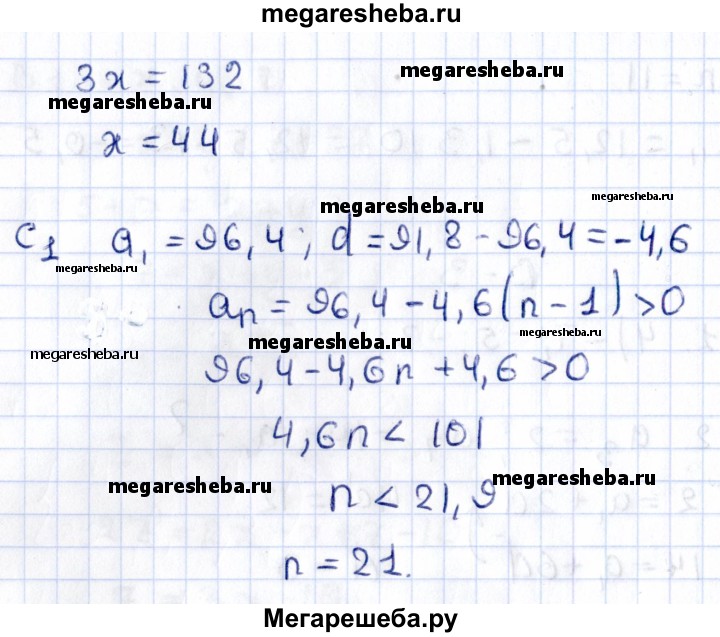 megaresheba.ru
3x = 132
megaresheba.ru
megaresheba.ru
x = 44
megaresheba.ru
megaresheba.ru
C1 a₁ = 96,4 ; d = 91,8 - 96,4 = -4,6
megaresheba.ru
aₙ = 96,4 - 4,6(n - 1) > 0
megaresheba.ru
megaresheba.ru
megaresheba.ru
96,4 - 4,6n + 4,6 > 0
4,6n < 101
megaresheba.ru
megaresheba.ru
n < 21,9
n = 21.
Мегарешеба.ру